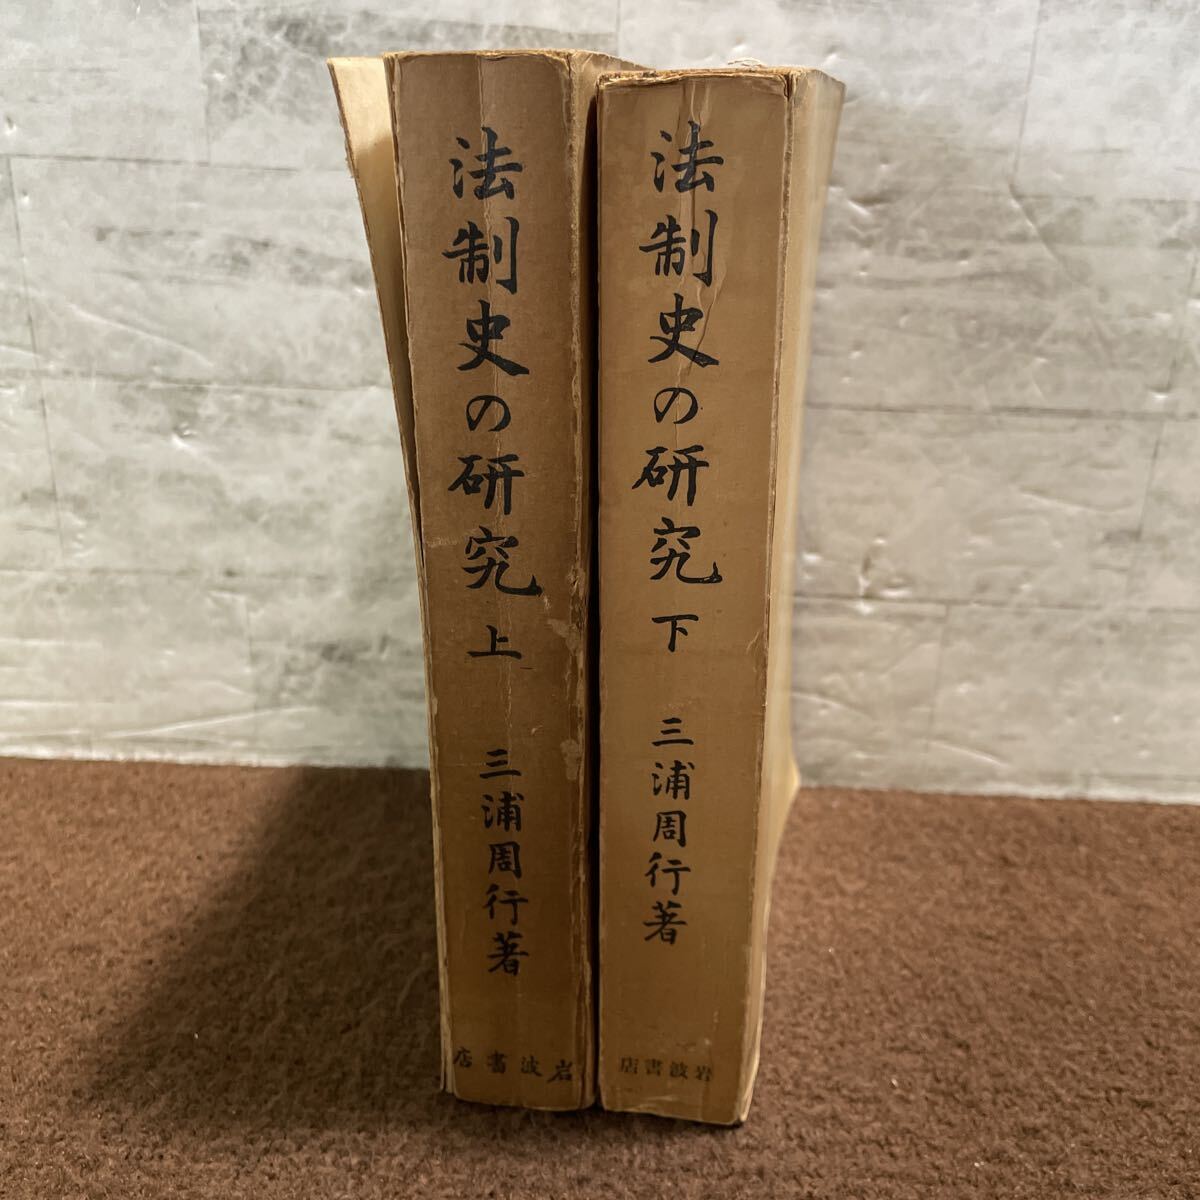 法制史の研究 上
三浦周行著
店書波岩
法制史の研究 下
三浦周行著
店書波岩